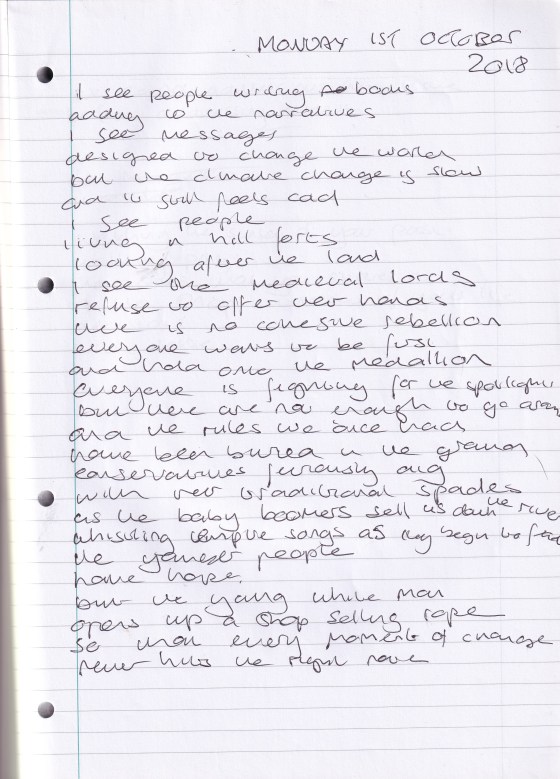 MONDAY 1ST OCTOBER
2018
I see people writing books
adding to the narratives
I see messages
designed to change the world
but the climate change is slow
and it still feels cold
I see people
living in hill forts
looking after the land
I see the medieval lords
refuse to offer their hands
there is no cohesive rebellion
everyone wants to be first
and hold onto the medallion
everyone is fighting for the spotlights
but there are not enough to go around
and the rules we once had
have been buried in the ground
conservatives furiously dig
with their traditional spades
as the baby boomers sell us down the river
whistling campfire songs as they begin to
the younger people
have hope.
but the young white man
opens up a shop selling rope
so that every moment of change
never hits the right note